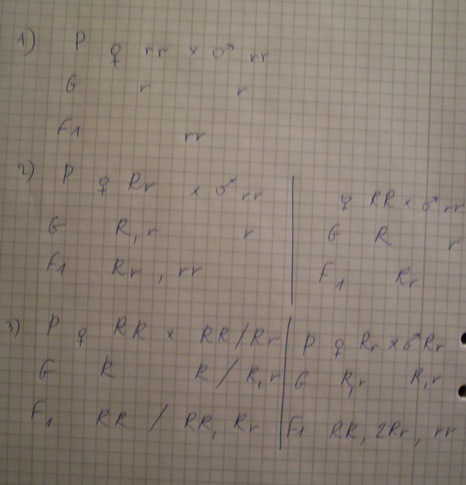 1) P ♀ rr x ♂ rr
G r r
F1 rr
2) P ♀ Rr x ♂ rr
G R, r r
F1 Rr, rr
♀ RR x ♂ rr
G R r
F1 Rr
3) P ♀ RR x RR/Rr
G R R/R, r
F1 RR / RR, Rr
P ♀ Rr x ♂ Rr
G R, r R, r
F1 RR, 2Rr, rr